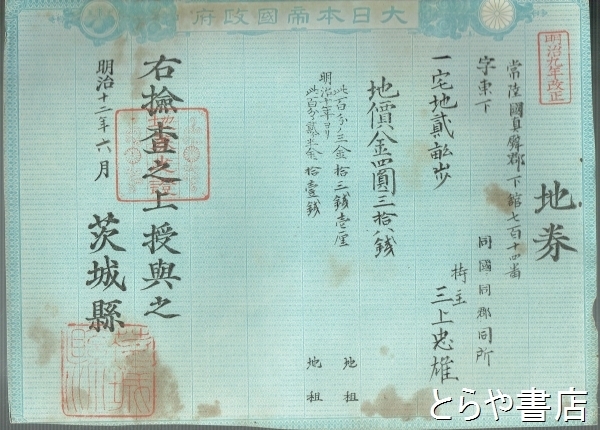 大日本帝國政府
明治九年改正
地券
常陸國真壁郡下館七百十四番
字東下
同國同郡同所
一宅地貳畝歩
持主 三上忠雄
地價金四圓三拾八銭
此百分ノ三金拾三銭壱厘 地租
明治十年ヨリ
此百分貳半金拾壹銭 地租
右撿査之上授與之
明治十二年六月
茨城縣
とらや書店